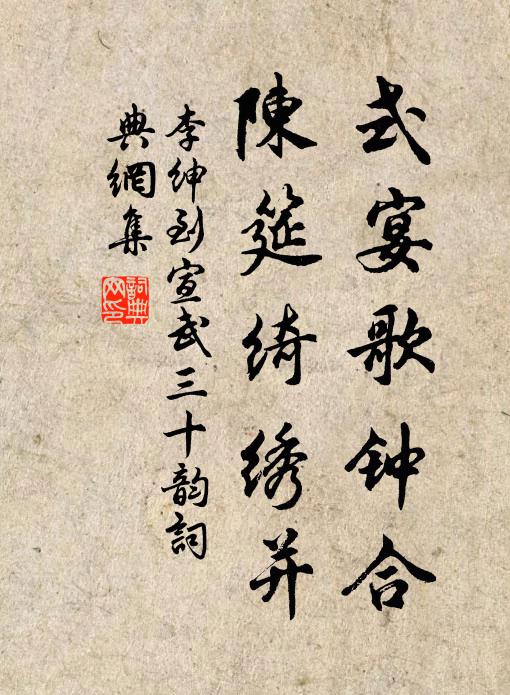 式宴歌钟合
陳筵绮绣并
李绅到宣武三十韵詞
典網集
詞典网印